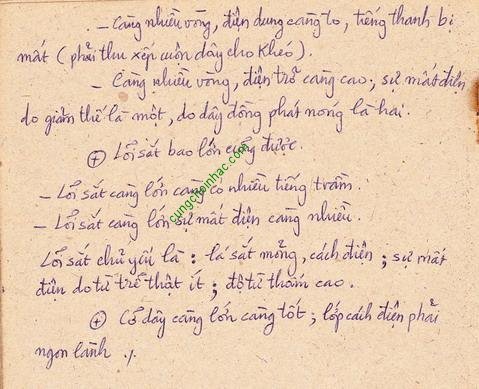 . – Càng nhiều vòng, điện dung càng to, tiếng thanh bị
mất (phải thu xếp cuôn dây cho khéo).
– Càng nhiều vòng, điện trở càng cao; sự mất điện
do giảm thế là một, do dây đồng phát nóng là hai.
⊕ Lỏi sắt bao lớn cũng được.
– Lỏi sắt càng lớn càng có nhiều tiếng trầm.
– Lỏi sắt càng lớn sự mất điện càng nhiều.
Lỏi sắt chủ yếu là : lá sắt mỏng, cách điện ; sự mất
điện do từ trễ thật ít ; độ từ thẩm cao.
⊕ Cở dây càng lớn càng tốt ; lớp cách điện phải
ngon lành ./.
cungchoinhac.com